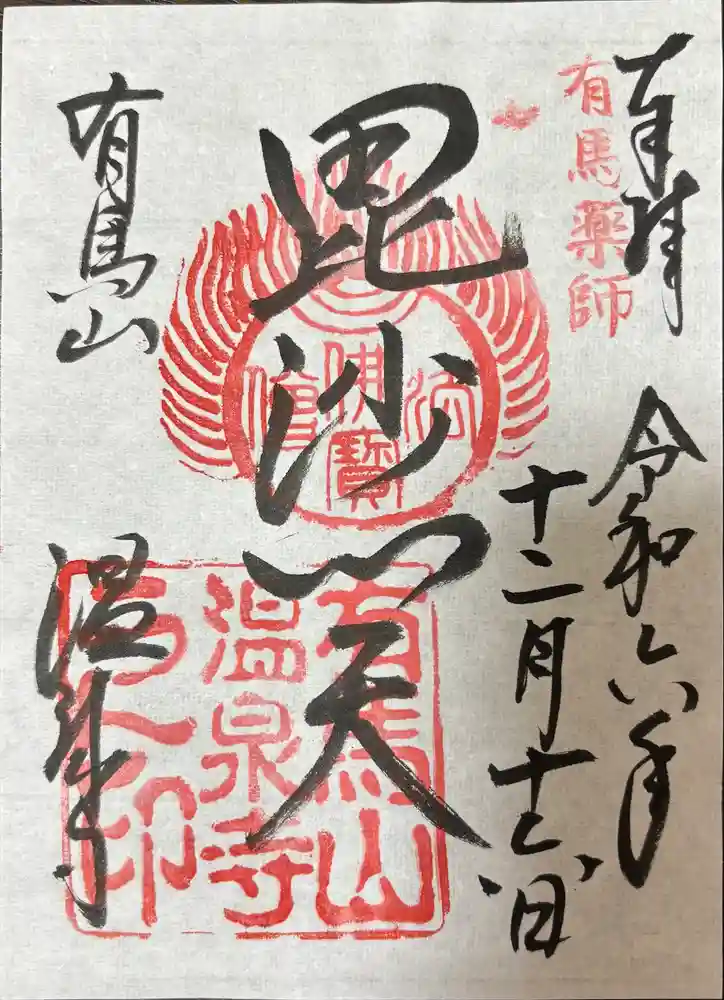 奉拝
有馬薬師
令和六年
十二月十六日
毘沙門天
佛法僧寳
有馬山
温泉寺
有馬山
温泉寺
之印